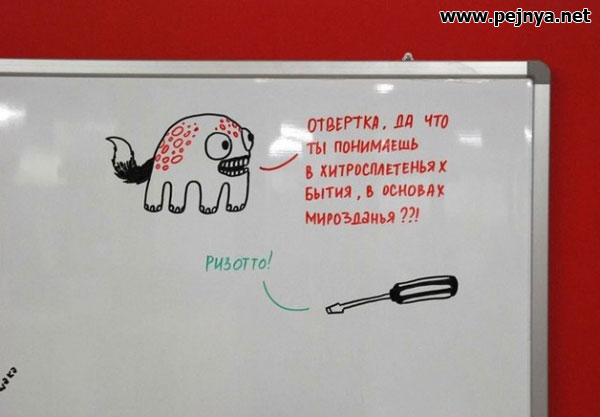 www.pejnya.net
ОТВЕРТКА, ДА ЧТО
ТЫ ПОНИМАЕШЬ
В ХИТРОСПЛЕТЕНЬЯХ
БЫТИЯ, В ОСНОВАХ
МИРОЗДАНЬЯ??!
РИЗОТТО!